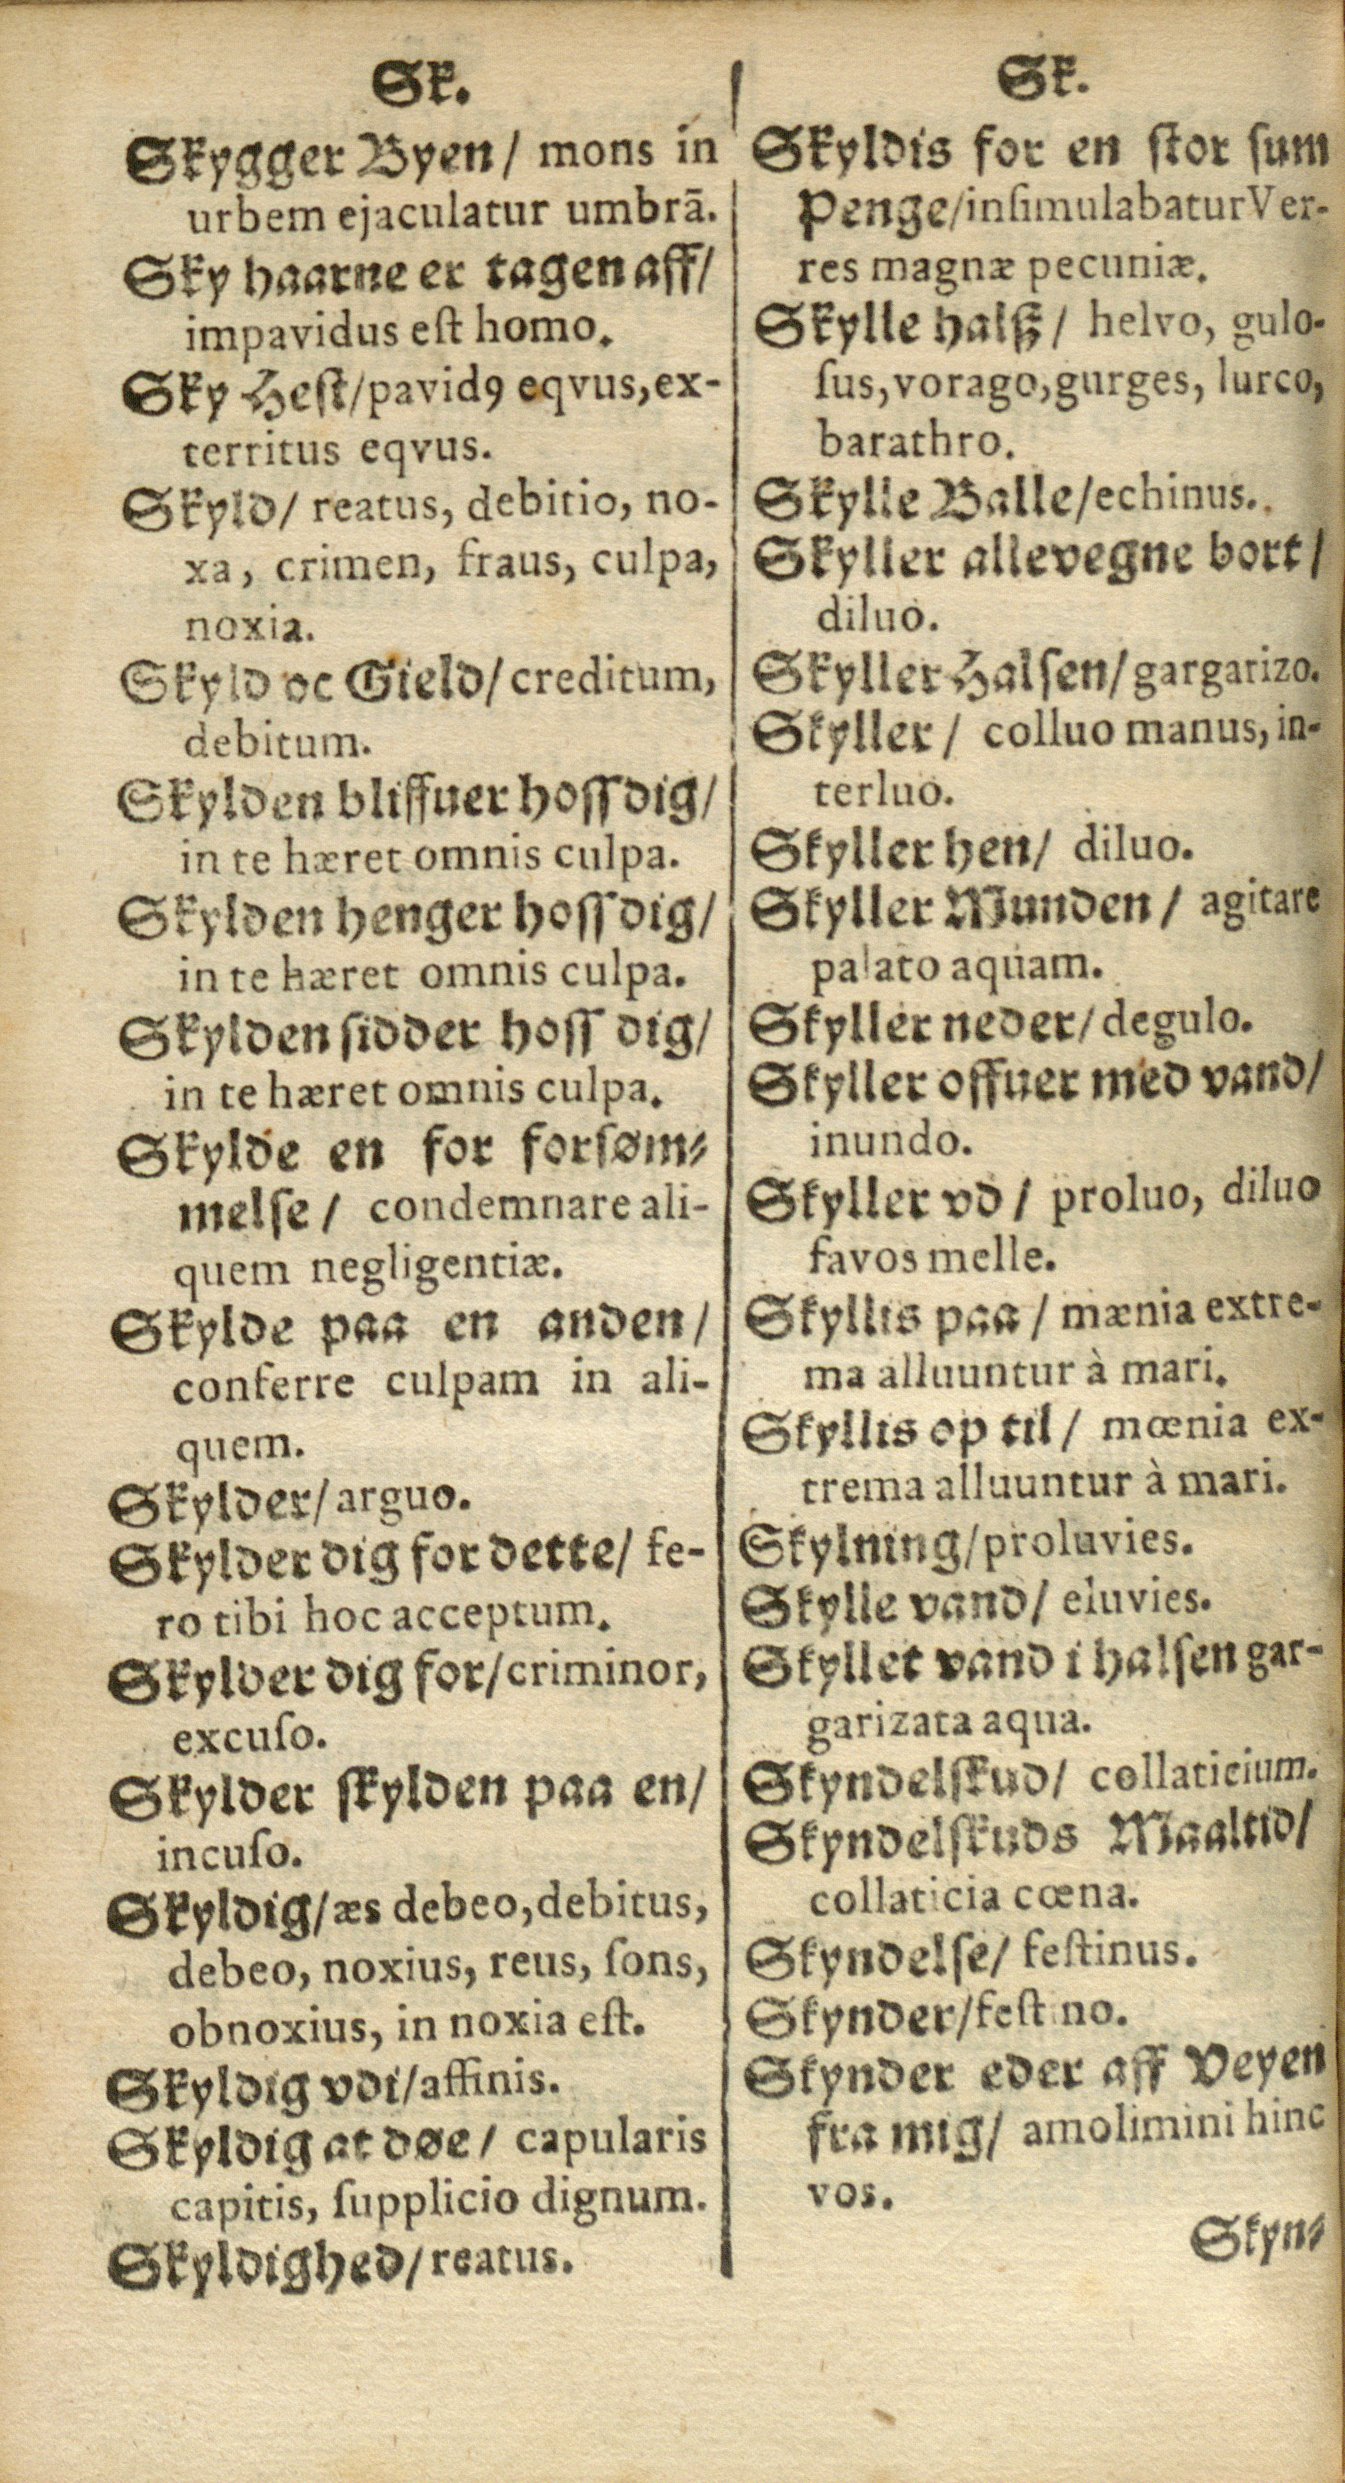 Sk.
Skygger Byen / mons in
urbem ejaculatur umbrā.
Sky haarne er tagen aff/
impavidus eſt homo.
Sky Heſt/pavidꝯ eqvus,ex-
territus eqvus.
Skyld/ reatus, debitio, no-
xa, crimen, fraus, culpa,
noxia.
Skyld oc Gield/creditum,
debitum.
Skylden bliffuer hoſſ dig/
in te hæret omnis culpa.
Skylden henger hoſſ dig/
in te hæret omnis culpa.
Skylden ſidder hoſſ dig/
in te hæret omnis culpa.
Skylde en for forſøm⸗
melſe / condemnare ali-
quem negligentiæ.
Skylde paa en anden/
conferre culpam in ali-
quem.
Skylder/arguo.
Skylder dig for dette/ fe-
ro tibi hoc acceptum.
Skylder dig for/criminor,
excuſo.
Skylder ſkylden paa en/
incuſo.
Skyldig/æs debeo,debitus,
debeo, noxius, reus, ſons,
obnoxius, in noxia eſt.
Skyldig vdi/affinis.
Skyldig at døe / capularis
capitis, ſupplicio dignum.
Skyldighed/reatus.
Sk.
Skyldis for en ſtor ſum
Penge/inſimulabatur Ver-
res magnæ pecuniæ.
Skylle halſz / helvo, gulo-
ſus,vorago,gurges, lurco,
barathro.
Skylle Balle/echinus.
Skyller allevegne bort/
diluo.
Skyller Halſen/gargarizo.
Skyller / colluo manus, in-
terluo.
Skyller hen/ diluo.
Skyller Munden / agitare
palato aquam.
Skyller neder/degulo.
Skyller offuer med vand/
inundo.
Skyller vd / proluo, diluo
favos melle.
Skyllis paa / mænia extre-
ma alluuntur à mari.
Skyllis op til / mœnia ex-
trema alluuntur à mari.
Skylning/proluvies.
Skylle vand/ eluvies.
Skyllet vand i halſen gar-
garizata aqua.
Skyndelſkud/ collaticium.
Skyndelſkuds Maaltid/
collaticia cœna.
Skyndelſe/ feſtinus.
Skynder/feſtino.
Skynder eder aff Veyen
fra mig/ amolimini hinc
vos.
Skyn⸗